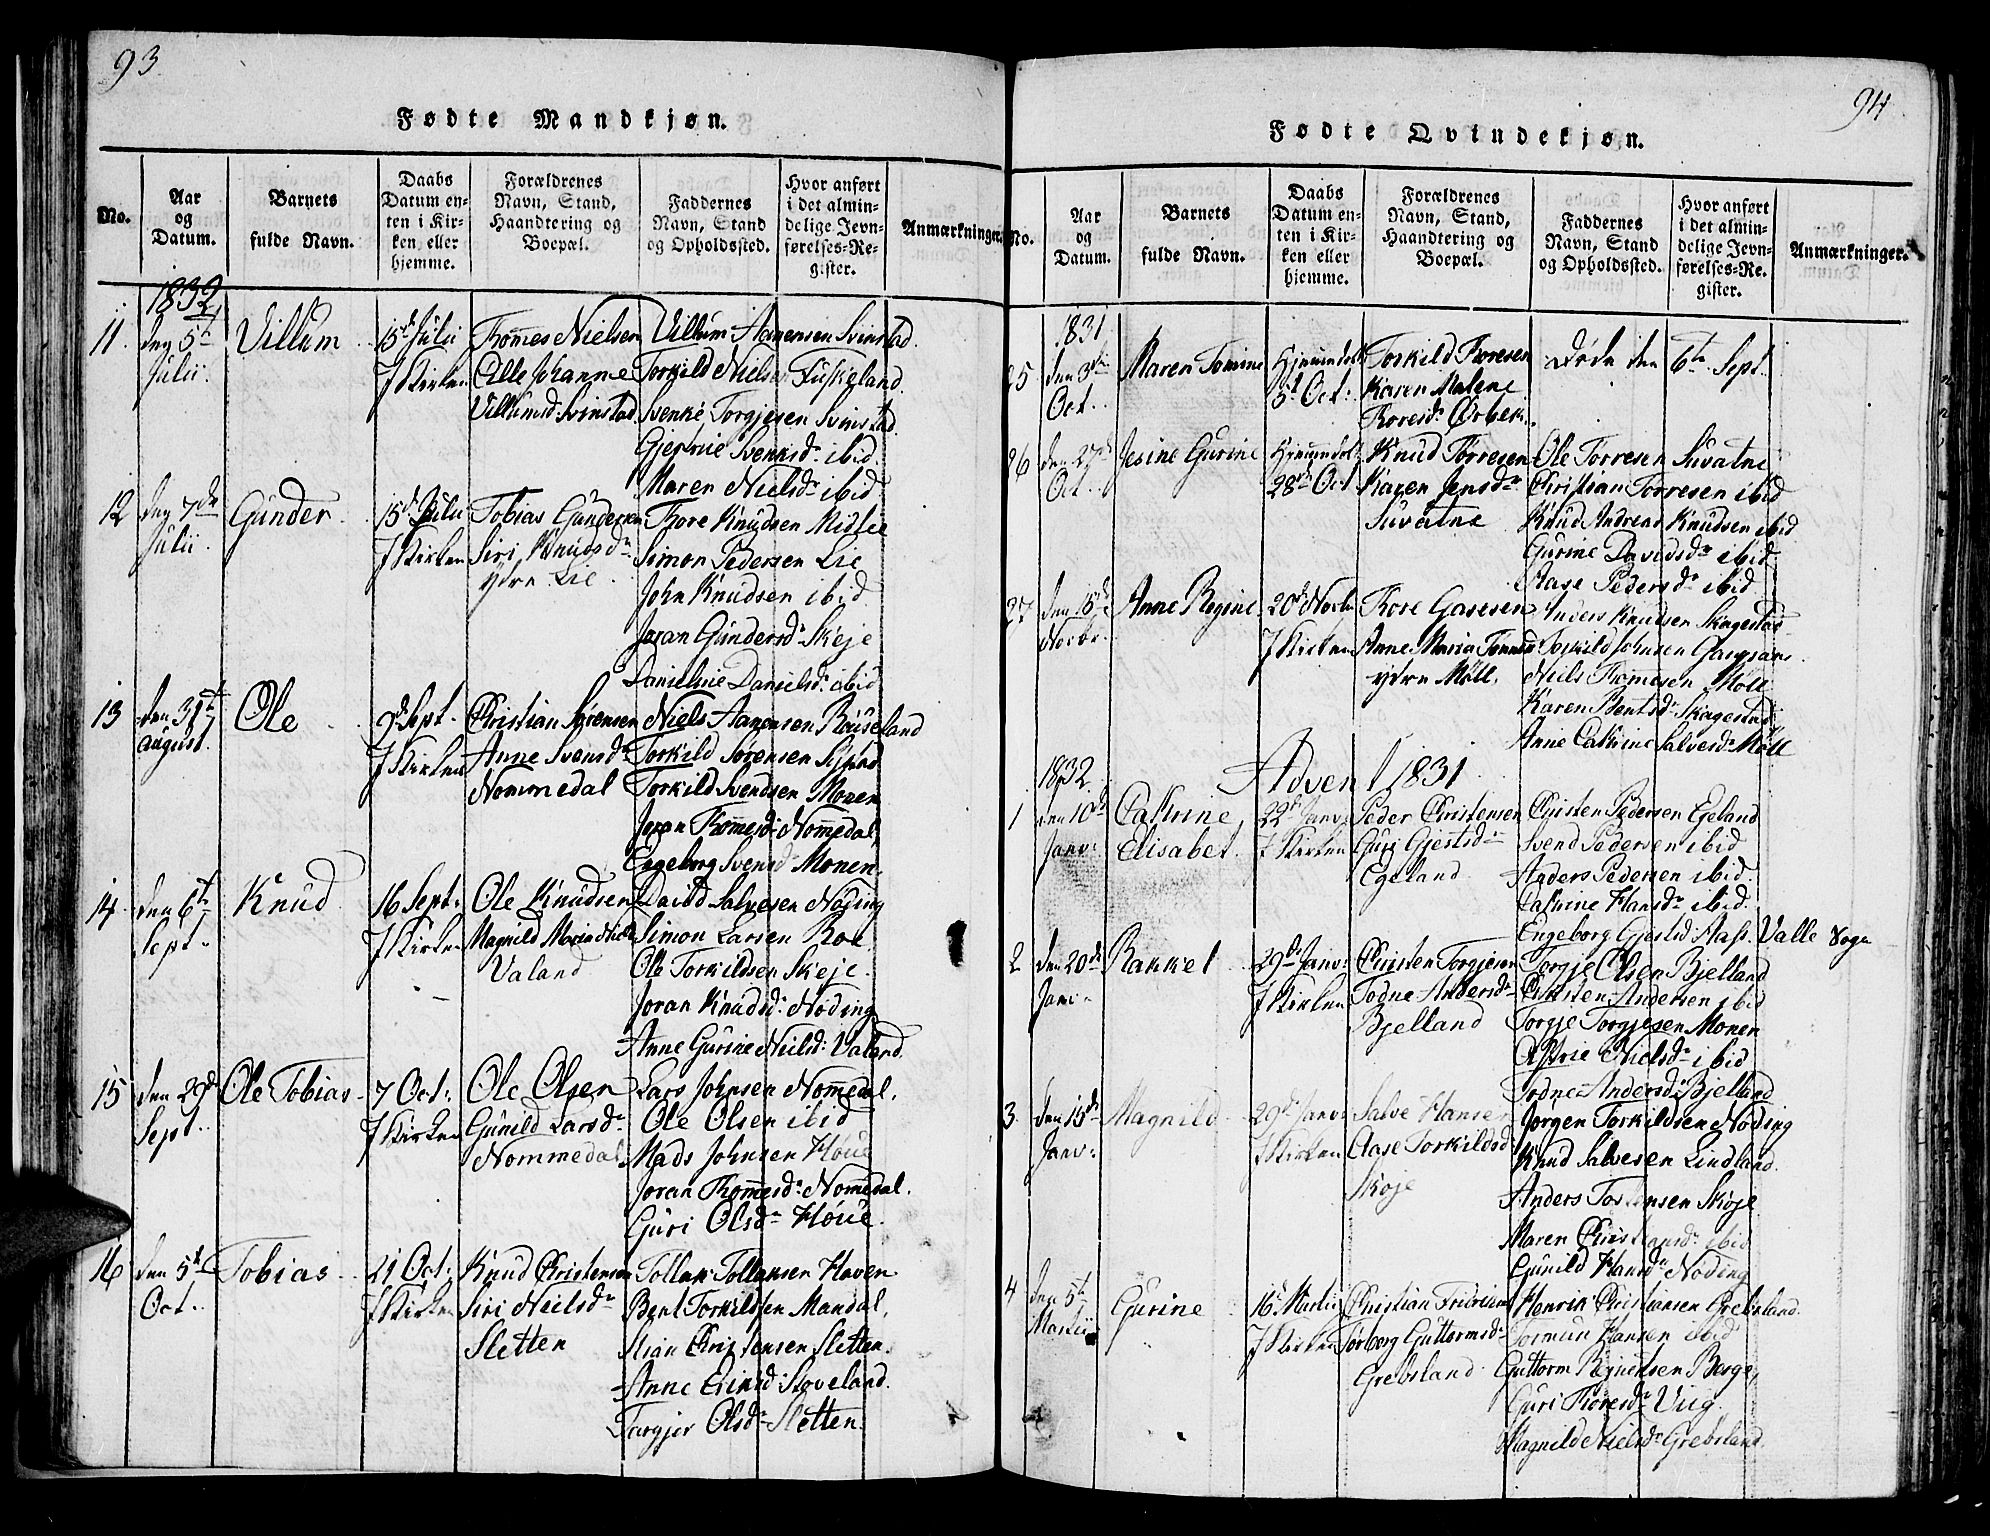 93
Fødte Mandkjøn.
No.
Aar og Datum.
Barnets fulde Navn.
Daabs Datum enten i Kirken eller hjemme.
Forældrenes Navn, Stand, Haandtering og Boepæl.
Faddernes Navn, Stand og Opholdssted.
Hvor anført i det almindelige Jevnførelses-Register.
Anmærkninger.
1832
11 den 5te Villum 15de Julii Thom̅es Nielsen Villum Aanensen Svinstad
Julii. I Kirken Alle Johanne Torkild Nielsen Fuskeland
Villumsd: Svinstad Svenke Torgjesen Svinstad
Gjertrue Svenksdr ibid
Maren Nielsdr ibid
12 den 7de Gunder 15de Julii Tobias Gundersen Thore Knudsen Midlee
Julii. I Kirken Siri Knudsdr Simon Pedersen Lie
ytre Lie. John Knudsen ibid
Joran Gundersdr Skeje
Danieline Danielsdr: ibid
13 den 31te Ole 9de Sept. Christian Sørensen Niels Aanensen Røuseland
August. I Kirken Anne Svensdr Torkild Sørensen
Nommedal Torkild Svendsen Monen
Joran Thom̅esd: Nom̅edal
Engeborg Svensd: Monen.
14 den 6te Knud 16 Sept: Ole Knudsen David Salvesen Nøding
Sept. I Kirken Magnild Maria Nielsdr Simon Larsen Roe
Valand Ole Torkildsen Skeje
Joran Knudsd: Nøding
Anne Gurine Neilsd: Valand.
15 den 29de Ole Tobias 7 Oct: Ole Olsen Lars Johnsen Nom̅edal.
Sept. I Kirken Gunild Larsdr Ole Olsen ibid
Nommedal Mads Johnsen Høue
Joran Thom̅esdr Nom̅edal.
Guri Olsdr Høue.
16 den 5te Tobias 21 Oct: Knud Christensen Tollak Tollaksen Haven
Oct. I Kirken Siri Neilsdr Bent Torkildsen Mandal,
Sletten Stian Christensen Sletten.
Anne Eriksd: Stoveland.
Targjer Olsdr Sletten.
94
Fødte Qvindekjøn.
No.
Aar og Datum.
Barnets fulde Navn.
Daabs Datum enten i Kirken eller hjemme.
Forældrenes Navn, Stand, Haandtering og Boepæl.
Faddernes Navn, Stand og Opholdssted.
Hvor anført i det almindelige Jevnførelses-Register.
Anmærkninger.
1831
25 den 3die Maren Tomine Hjemmedøbt Torkild Thoresen Døde den 6te Sept.
Oct. 5t Oct: Karen Malene
Thoresdr
26 den 27de Jesine Gurine Hjemmedøbt Knud Torresen Ole Torresen Suvatne
Oct. 28de Oct Karen Jensdr Christian Torresen ibid
Suvatne Knud Andreas Knudsen ibid
Gurine Davidsdr ibid
Aase Pedersdr ibid
27 den 15de Anne Regine 20de Novbr Thore Gasesen Anders Knudsen Skagestad
Novbr. I Kirken Anne Maria Tom̅esdr Torkild Johnsen
ytre Møll. Niels Thom̅esen Møll
Karen Bentsdr Skagestad
Anne Cathrine Salvesdr Møll
1832 Advent 1831
1 den 10de Cathrine 22de Janv: Peder Christensen Christen Pedersen Egeland
Janv: Elisabet. I Kirken Guri Gjestsdr Svend Pedersen ibid
Egeland Anders Pedersen ibid.
Cathrine Hansdr ibid.
Engeborg Gjestsd Aass. Valle Sogn
2 den 20de Rakkel 29de Janv: Christen Torgjesen Torgje Olsen Bjelland
Janv. I Kirken Todne Andersdr Christen Andersen ibid
Bjelland Torgje Torgjesen Monen
Astrie Nielsdr ibid
Todne Andersd: Bjelland
3. den 15de Magnild 29de Janv Salve Hansen Jørgen Torkildsen Nøding
Janv: I Kirken Aase Torkildsd: Knud Salvesen Lindland.
Skøje Anders Torkensen Skøje
Maren Christiansdr ibid
Gunild Hansdr Nøding
4 den 5te Gurine 16 Martii Christian Fridrichsen Henrik Christiansen Grebsland.
Martii I Kirken Torborg Guttormsdr Tormun Hansen ibid
Grebsland Guttorm Regnertsen Berge
Guri Thoresdr Uvig
Magnild Nielsdr Grebsland